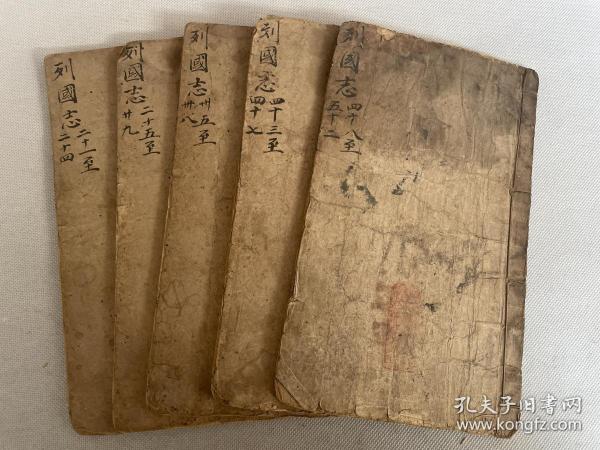 列國志
二十一至
二十四
列國志
二十五至
廿九
列國志
卅五至
卅八
列國志
四十三至
四十七
列國志
四十八至
五十二
孔夫子旧书网
www.kongfz.com